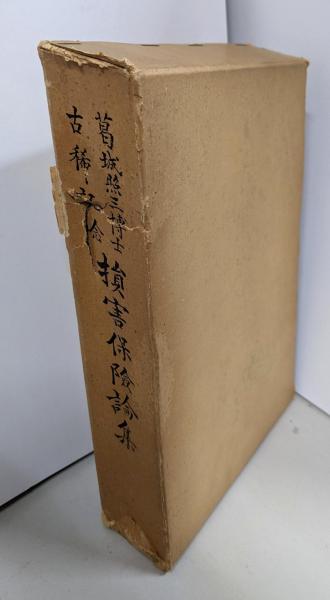 葛城照三博士
古稀記念
損害保険論集